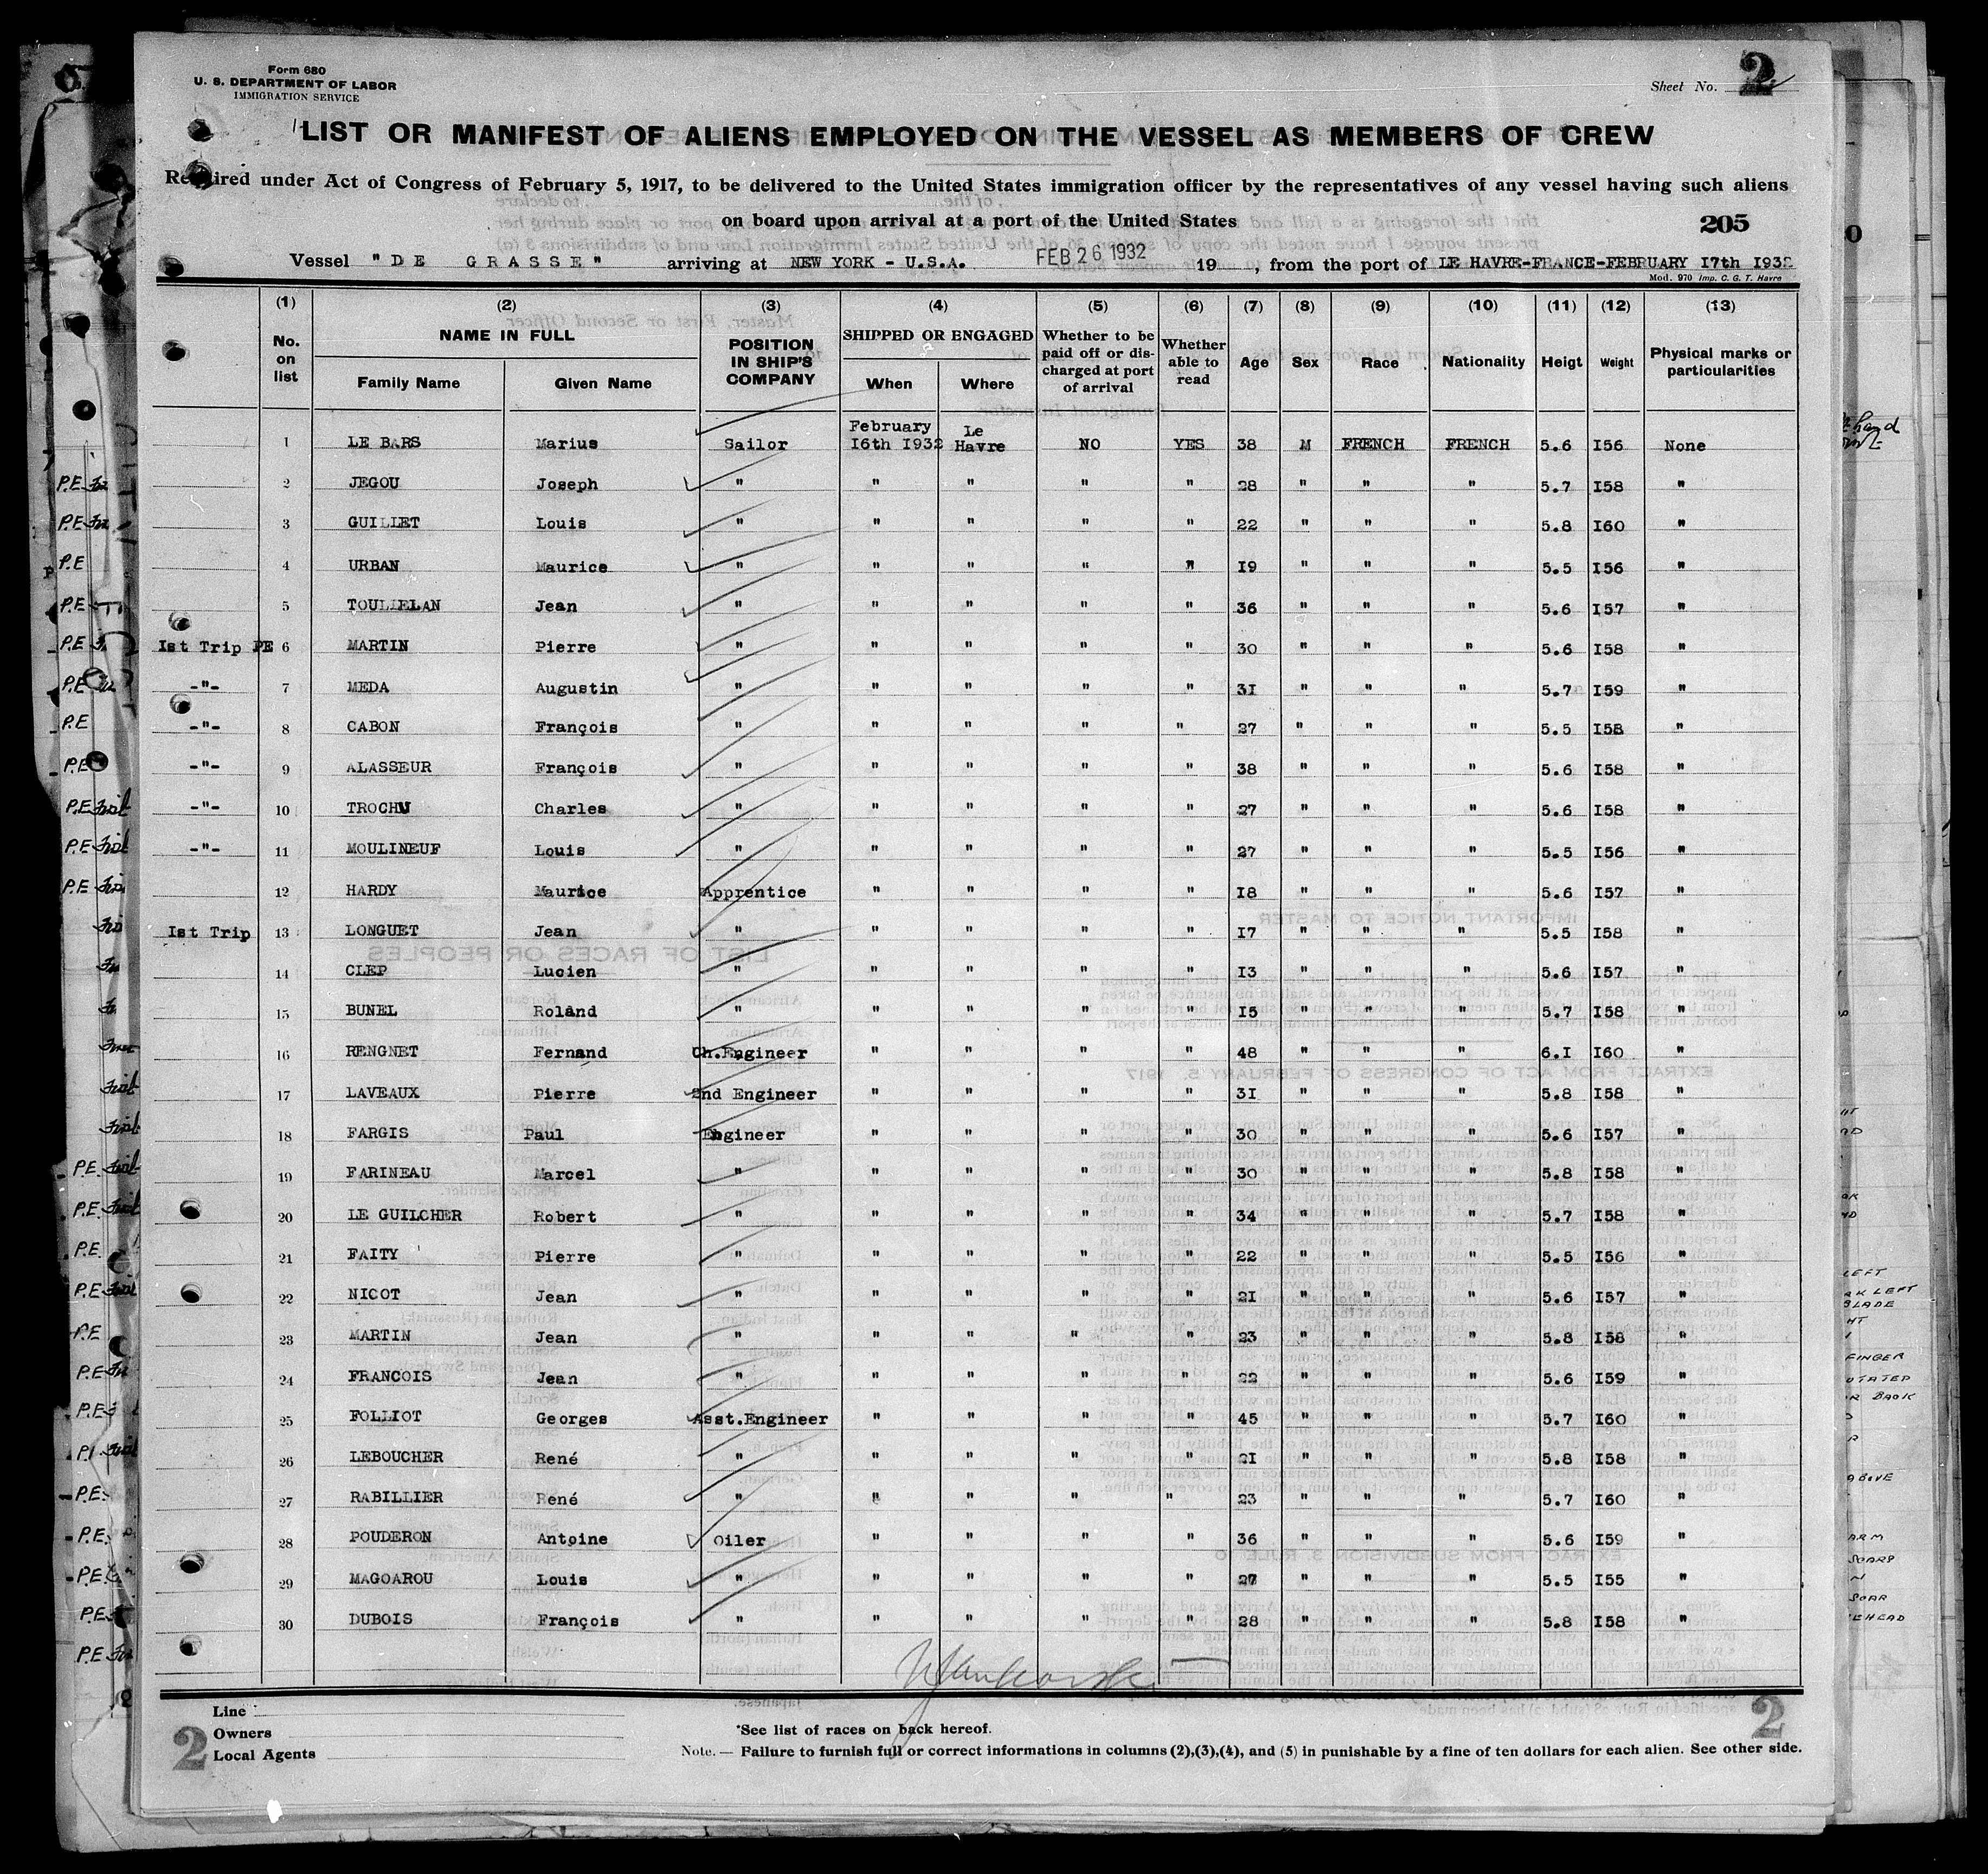 Form 680
U. S. DEPARTMENT OF LABOR
IMMIGRATION SERVICE
Sheet No. 2
LIST OR MANIFEST OF ALIENS EMPLOYED ON THE VESSEL AS MEMBERS OF CREW
Required under Act of Congress of February 5, 1917, to be delivered to the United States immigration officer by the representatives of any vessel having such aliens
on board upon arrival at a port of the United States
205
Vessel "DE GRASSE" arriving at NEW YORK - U.S.A. FEB 26 1932 19 , from the port of LE HAVRE-FRANCE-FEBRUARY I7th I932
Mod. 970 Imp. C. G. T. Havre
(1) (2) (3) (4) (5) (6) (7) (8) (9) (10) (11) (12) (13)
No. on list NAME IN FULL POSITION IN SHIP'S COMPANY SHIPPED OR ENGAGED Whether to be paid off or discharged at port of arrival Whether able to read Age Sex Race Nationality Heigt Weight Physical marks or particularities
Family Name Given Name When Where
1 LE BARS Marius Sailor February I6th I932 Le Havre NO YES 38 M FRENCH FRENCH 5.6 I56 None
2 JEGOU Joseph " " " " " 28 " " " 5.7 I58 "
3 GUILLET Louis " " " " " 22 " " " 5.8 I60 "
4 URBAN Maurice " " " " " I9 " " " 5.5 I56 "
5 TOULLELAN Jean " " " " " 36 " " " 5.6 I57 "
Ist Trip PE 6 MARTIN Pierre " " " " " 30 " " " 5.6 I58 "
-"- 7 MEDA Augustin " " " " " 3I " " " 5.7 I59 "
-"- 8 CABON François " " " " " 27 " " " 5.5 I58 "
-"- 9 ALASSEUR François " " " " " 38 " " " 5.6 I58 "
-"- 10 TROCHU Charles " " " " " 27 " " " 5.6 I58 "
-"- 11 MOULINEUF Louis " " " " " 27 " " " 5.5 I56 "
12 HARDY Maurice Apprentice " " " " I8 " " " 5.6 I57 "
Ist Trip 13 LONGUET Jean " " " " " I7 " " " 5.5 I58 "
14 CLEP Lucien " " " " " I3 " " " 5.6 I57 "
15 BUNEL Roland " " " " " I5 " " " 5.7 I58 "
16 RENGNET Fernand Ch.Engineer " " " " 48 " " " 6.I I60 "
17 LAVEAUX Pierre 2nd Engineer " " " " 3I " " " 5.8 I58 "
18 FARGIS Paul Engineer " " " " 30 " " " 5.6 I57 "
19 FARINEAU Marcel " " " " " 30 " " " 5.8 I58 "
20 LE GUILCHER Robert " " " " " 34 " " " 5.7 I58 "
21 FAITY Pierre " " " " " 22 " " " 5.5 I56 "
22 NICOT Jean " " " " " 2I " " " 5.6 I57 "
23 MARTIN Jean " " " " " 23 " " " 5.8 I58 "
24 FRANCOIS Jean " " " " " 22 " " " 5.6 I59 "
25 FOLLIOT Georges Asst.Engineer " " " " 45 " " " 5.7 I60 "
26 LEBOUCHER René " " " " " 2I " " " 5.8 I58 "
27 RABILLIER René " " " " " 23 " " " 5.7 I60 "
28 POUDERON Antoine Oiler " " " " 36 " " " 5.6 I59 "
29 MAGOAROU Louis " " " " " 27 " " " 5.5 I55 "
30 DUBOIS François " " " " " 28 " " " 5.8 I58 "
Line
Owners
Local Agents
2
*See list of races on back hereof.
Note. — Failure to furnish full or correct informations in columns (2),(3),(4), and (5) in punishable by a fine of ten dollars for each alien. See other side.
2